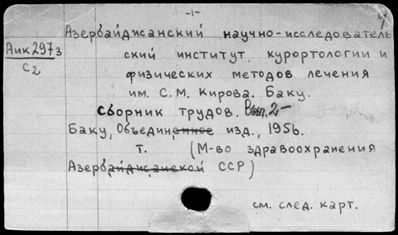 -1-
Азербайджанский научно-исследователь
Аик297з
C2
ский институт курортологии и
физических методов лечения
им. С.М. Кирова. Баку.
Сборник трудов. Вып. 2-
Баку, Объединенное изд., 1956.
т. (М-во здравоохранения
Азербайджанской ССР)
см. след. карт.